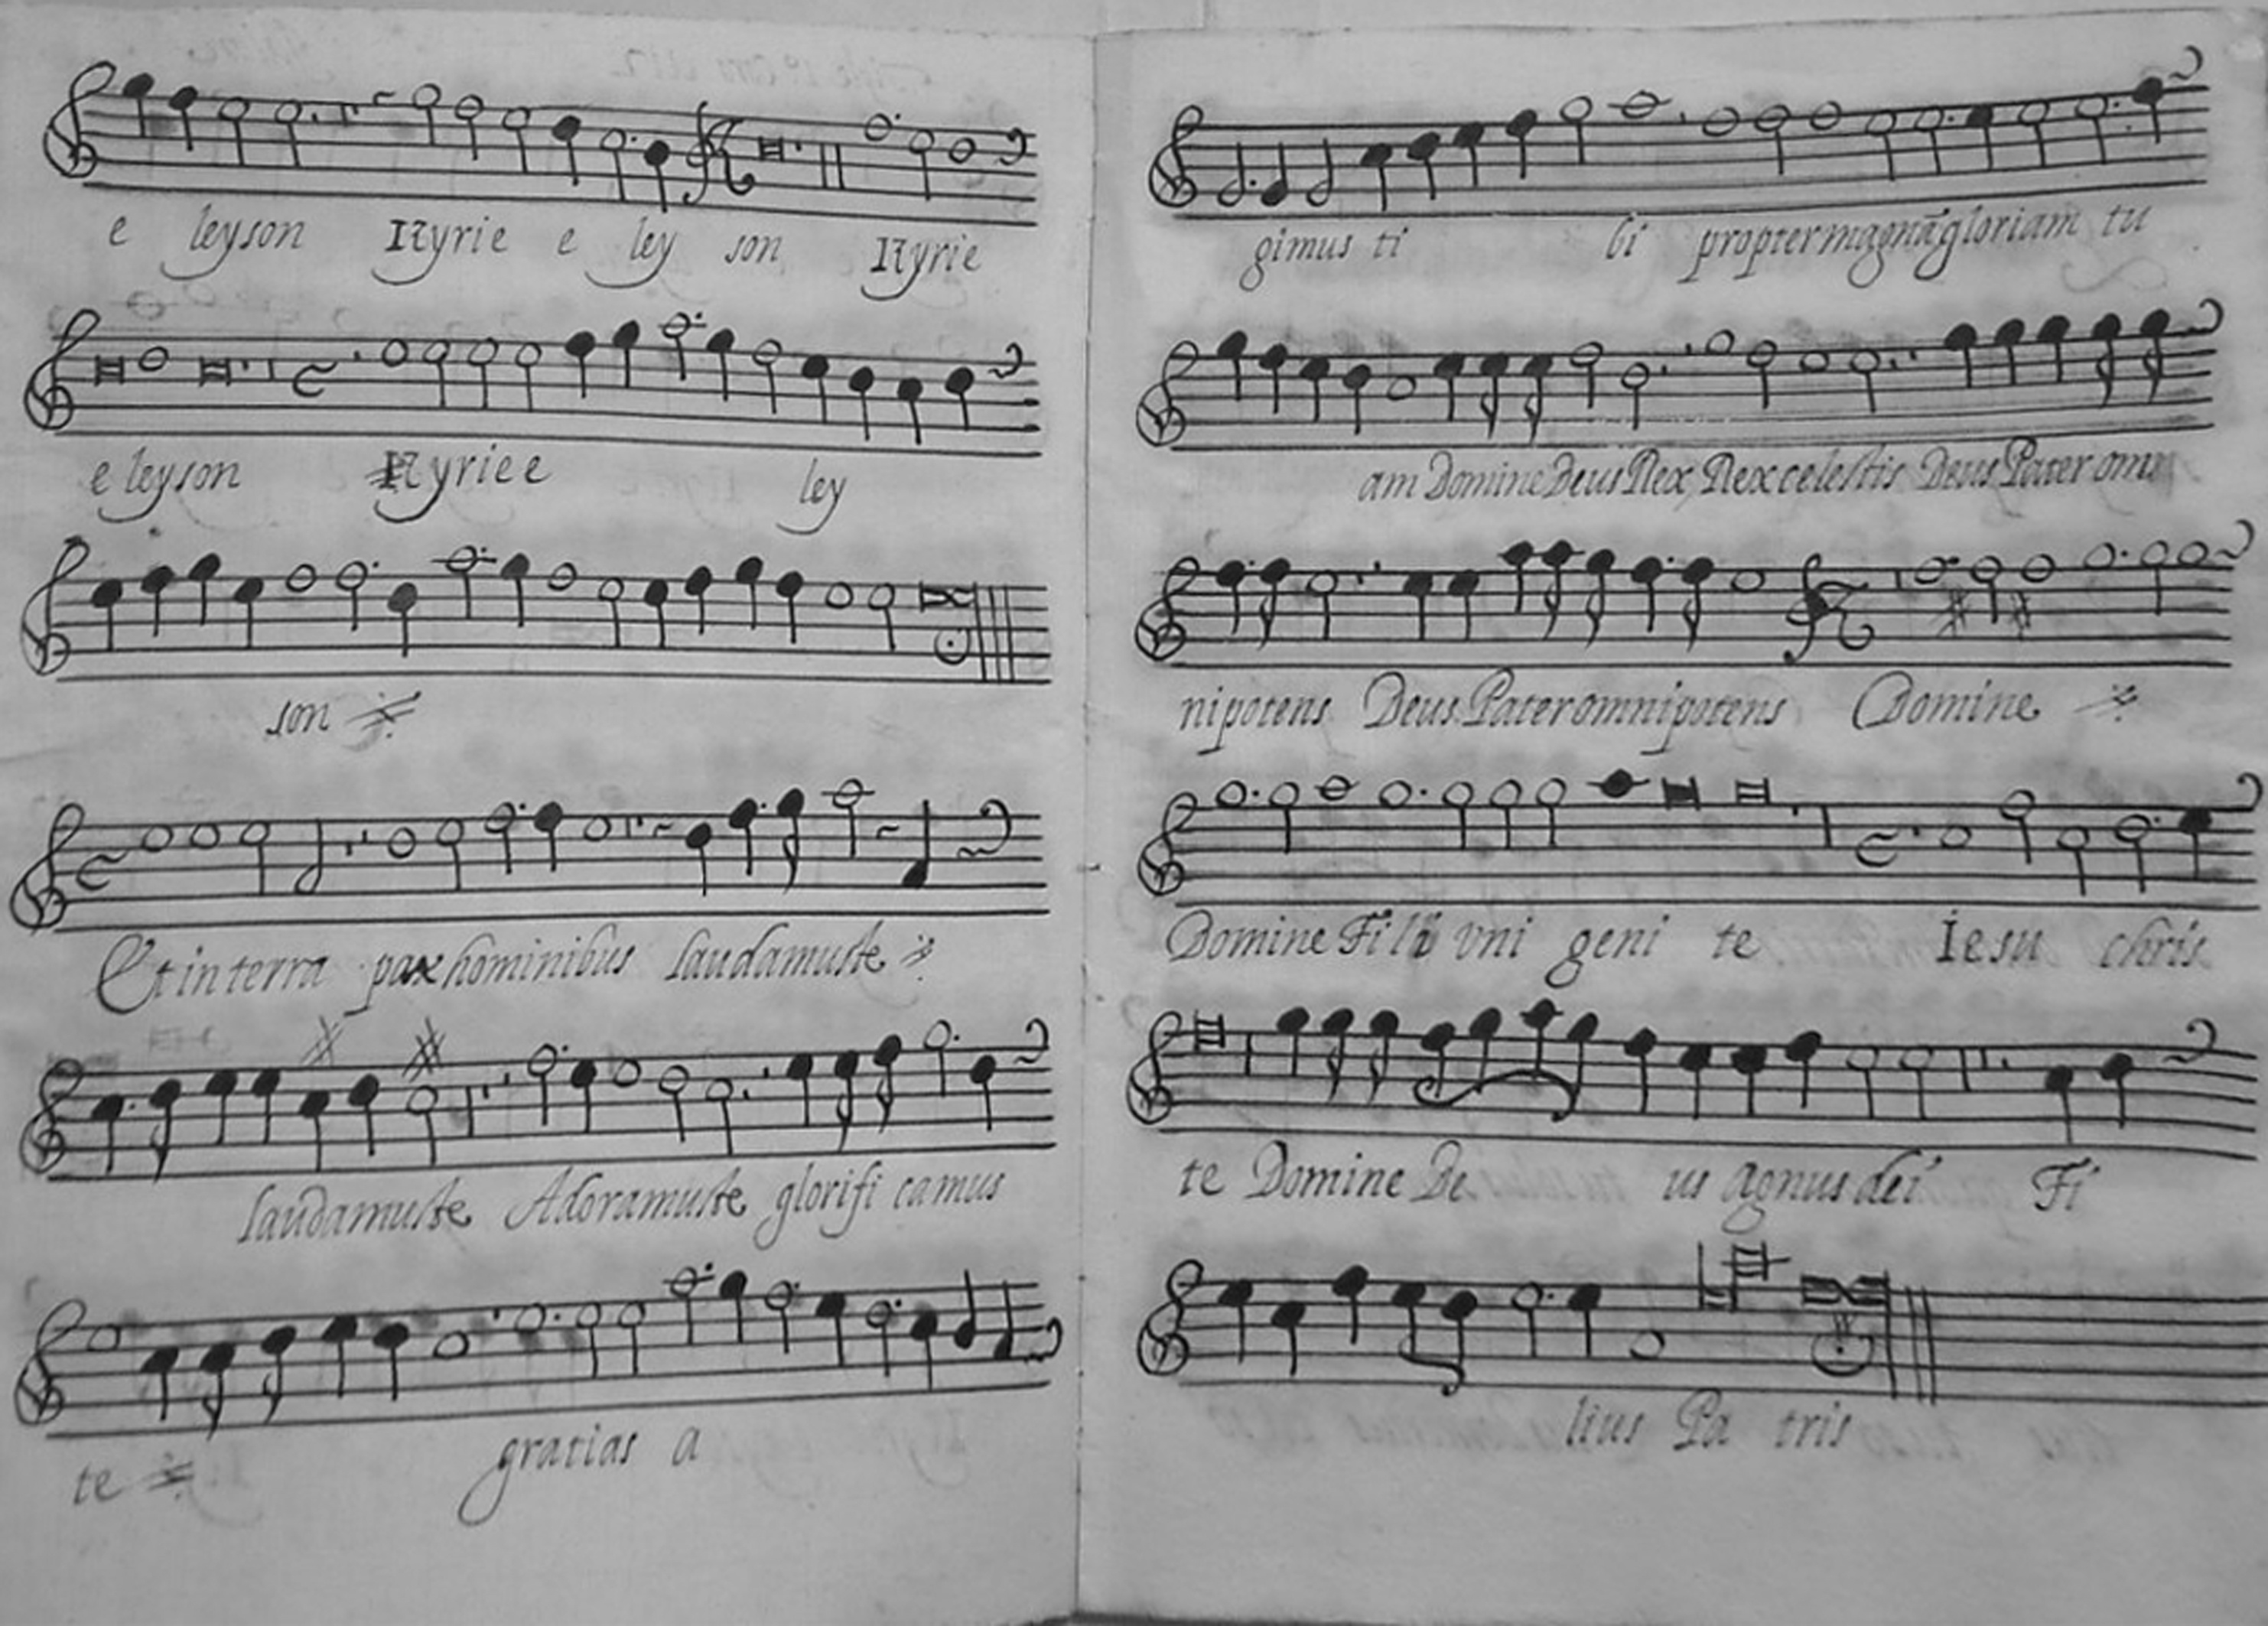 e leyson Kyrie e ley son Kyrie
e leyson Kyrie e ley
son
Et in terra pax hominibus laudamuste
laudamuste Adoramuste glorifi camus
te gratias a
gimus ti bi propter magnā gloriam tu
am Domine Deus Rex Rex celestis Deus Pater om
nipotens Deus Pater omnipotens Domine
Domine Fili vni geni te Iesu chris
te Domine De us agnus dei Fi
lius Pa tris